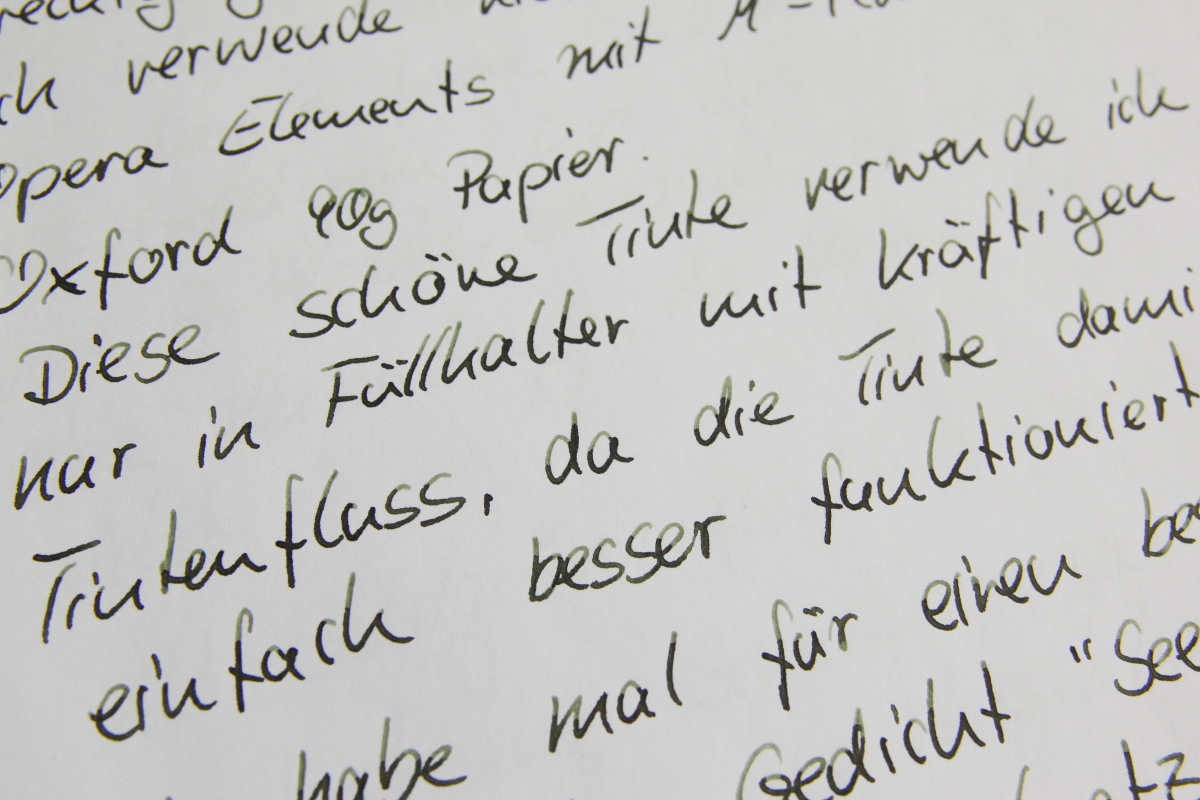 verwende
Opera Elements mit M-
Oxford 90g Papier.
Diese schöne Tinte verwende ich
nur in Füllhalter mit kräftigen
Tintenfluss, da die Tinte
einfach besser funktioniert
habe mal für einen
Gedicht "See